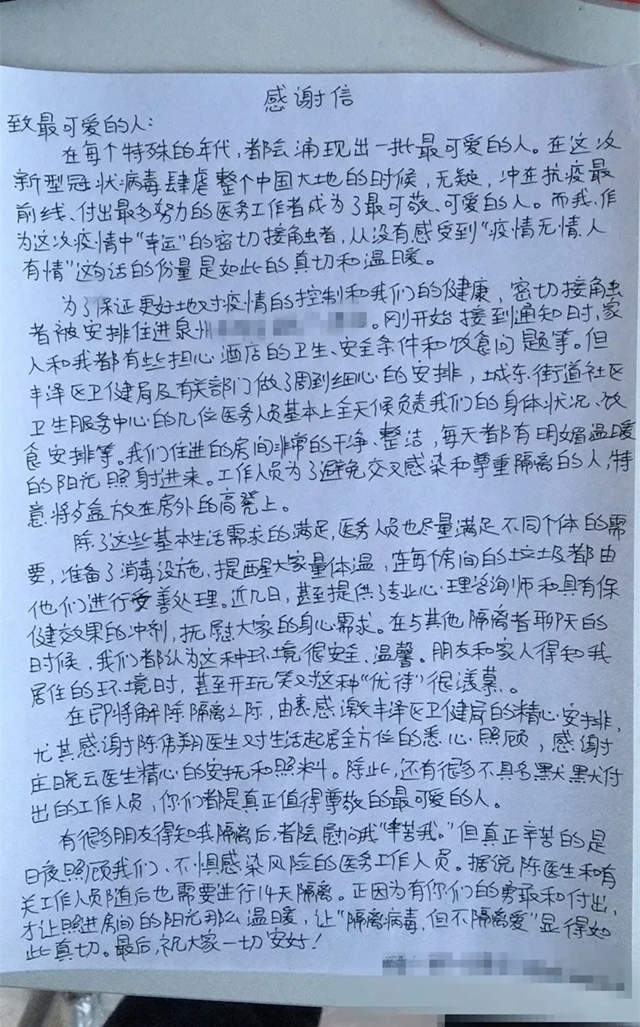 感谢信
致最可爱的人:
在每个特殊的年代,都会涌现出一批最可爱的人。在这次
新型冠状病毒肆虐整个中国大地的时候,无疑,冲在抗疫最
前线、付出最多努力的医务工作者成为了最可敬、可爱的人。而我,作
为这次疫情中“幸运”的密切接触者,从没有感受到“疫情无情,人
有情”这句话的份量是如此的真切和温暖。
为了保证更好地对疫情的控制和我们的健康,密切接触
者被安排住进泉州 。刚开始接到通知时,家
人和我都有些担心酒店的卫生、安全条件和饮食问题等。但
丰泽区卫健局及有关部门做了周到细心的安排,城东街道社区
卫生服务中心的几位医务人员基本上全天候负责我们的身体状况、饮
食安排等。我们住进的房间非常的干净、整洁,每天都有明媚温暖
的阳光照射进来。工作人员为了避免交叉感染和尊重隔离的人,特
意将餐盒放在房外的高凳上。
除了这些基本生活需求的满足,医务人员也尽量满足不同个体的需
要,准备了消毒设施、提醒大家量体温,连每个房间的垃圾都由
他们进行妥善处理。近几日,甚至提供了专业心理咨询师和具有保
健效果的冲剂,抚慰大家的身心需求。在与其他隔离者聊天的
时候,我们都认为这种环境很安全、温馨。朋友和家人得知我
居住的环境时,甚至开玩笑对这种“优待”很羡慕。
在即将解除隔离之际,由衷感激丰泽区卫健局的精心安排,
尤其感谢陈伟翔医生对生活起居全方位的悉心照顾,感谢
庄晓云医生精心的安抚和照料。除此,还有很多不具名默默付
出的工作人员,你们都是真正值得尊敬的最可爱的人。
有很多朋友得知我隔离后,都会慰问我“辛苦我。”但真正辛苦的是
日夜照顾我们、不惧感染风险的医务工作人员。据说陈医生和有
关工作人员随后也需要进行14天隔离。正因为有你们的勇敢和付出,
才让照进房间的阳光那么温暖,让“隔离病毒,但不隔离爱”显得如
此真切。最后,祝大家一切安好!